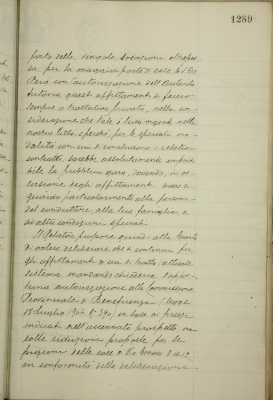 1289
porto delle singole
se, per la maggior parte
Però con l'autorizzazione dell'Autorità
tutoria quest'affittamenti si fecero
sempre a trattativa privata, nella con-
siderazione che tale è l'uso vigente nella
nostra Città, e perché, per le speciali mo-
dalità con cui si concludono i relativi
contratti, sarebbe assolutamente impossi-
bile la pubblica gara, dovendo, in oc-
casione degli affittamenti aver ri-
guardo particolarmente alla persona
del conduttore alla sua famiglia e
ad altre condizioni speciali.
Il Relatore propone quindi alla Giunta
di voler deliberare che si continui per
gli affittamenti di cui si tratta, l'attuale
sistema, mandando chiedere l'oppor-
tuna autorizzazione alla Commissione
Provinciale di Beneficenza (Legge
18 Luglio 1904 N. 390) in base ai prezzi
indicati nell'accennato prospetto, ma
colle riduzioni proposte per le
pigioni delle case di Via
in conformità della deliberazione